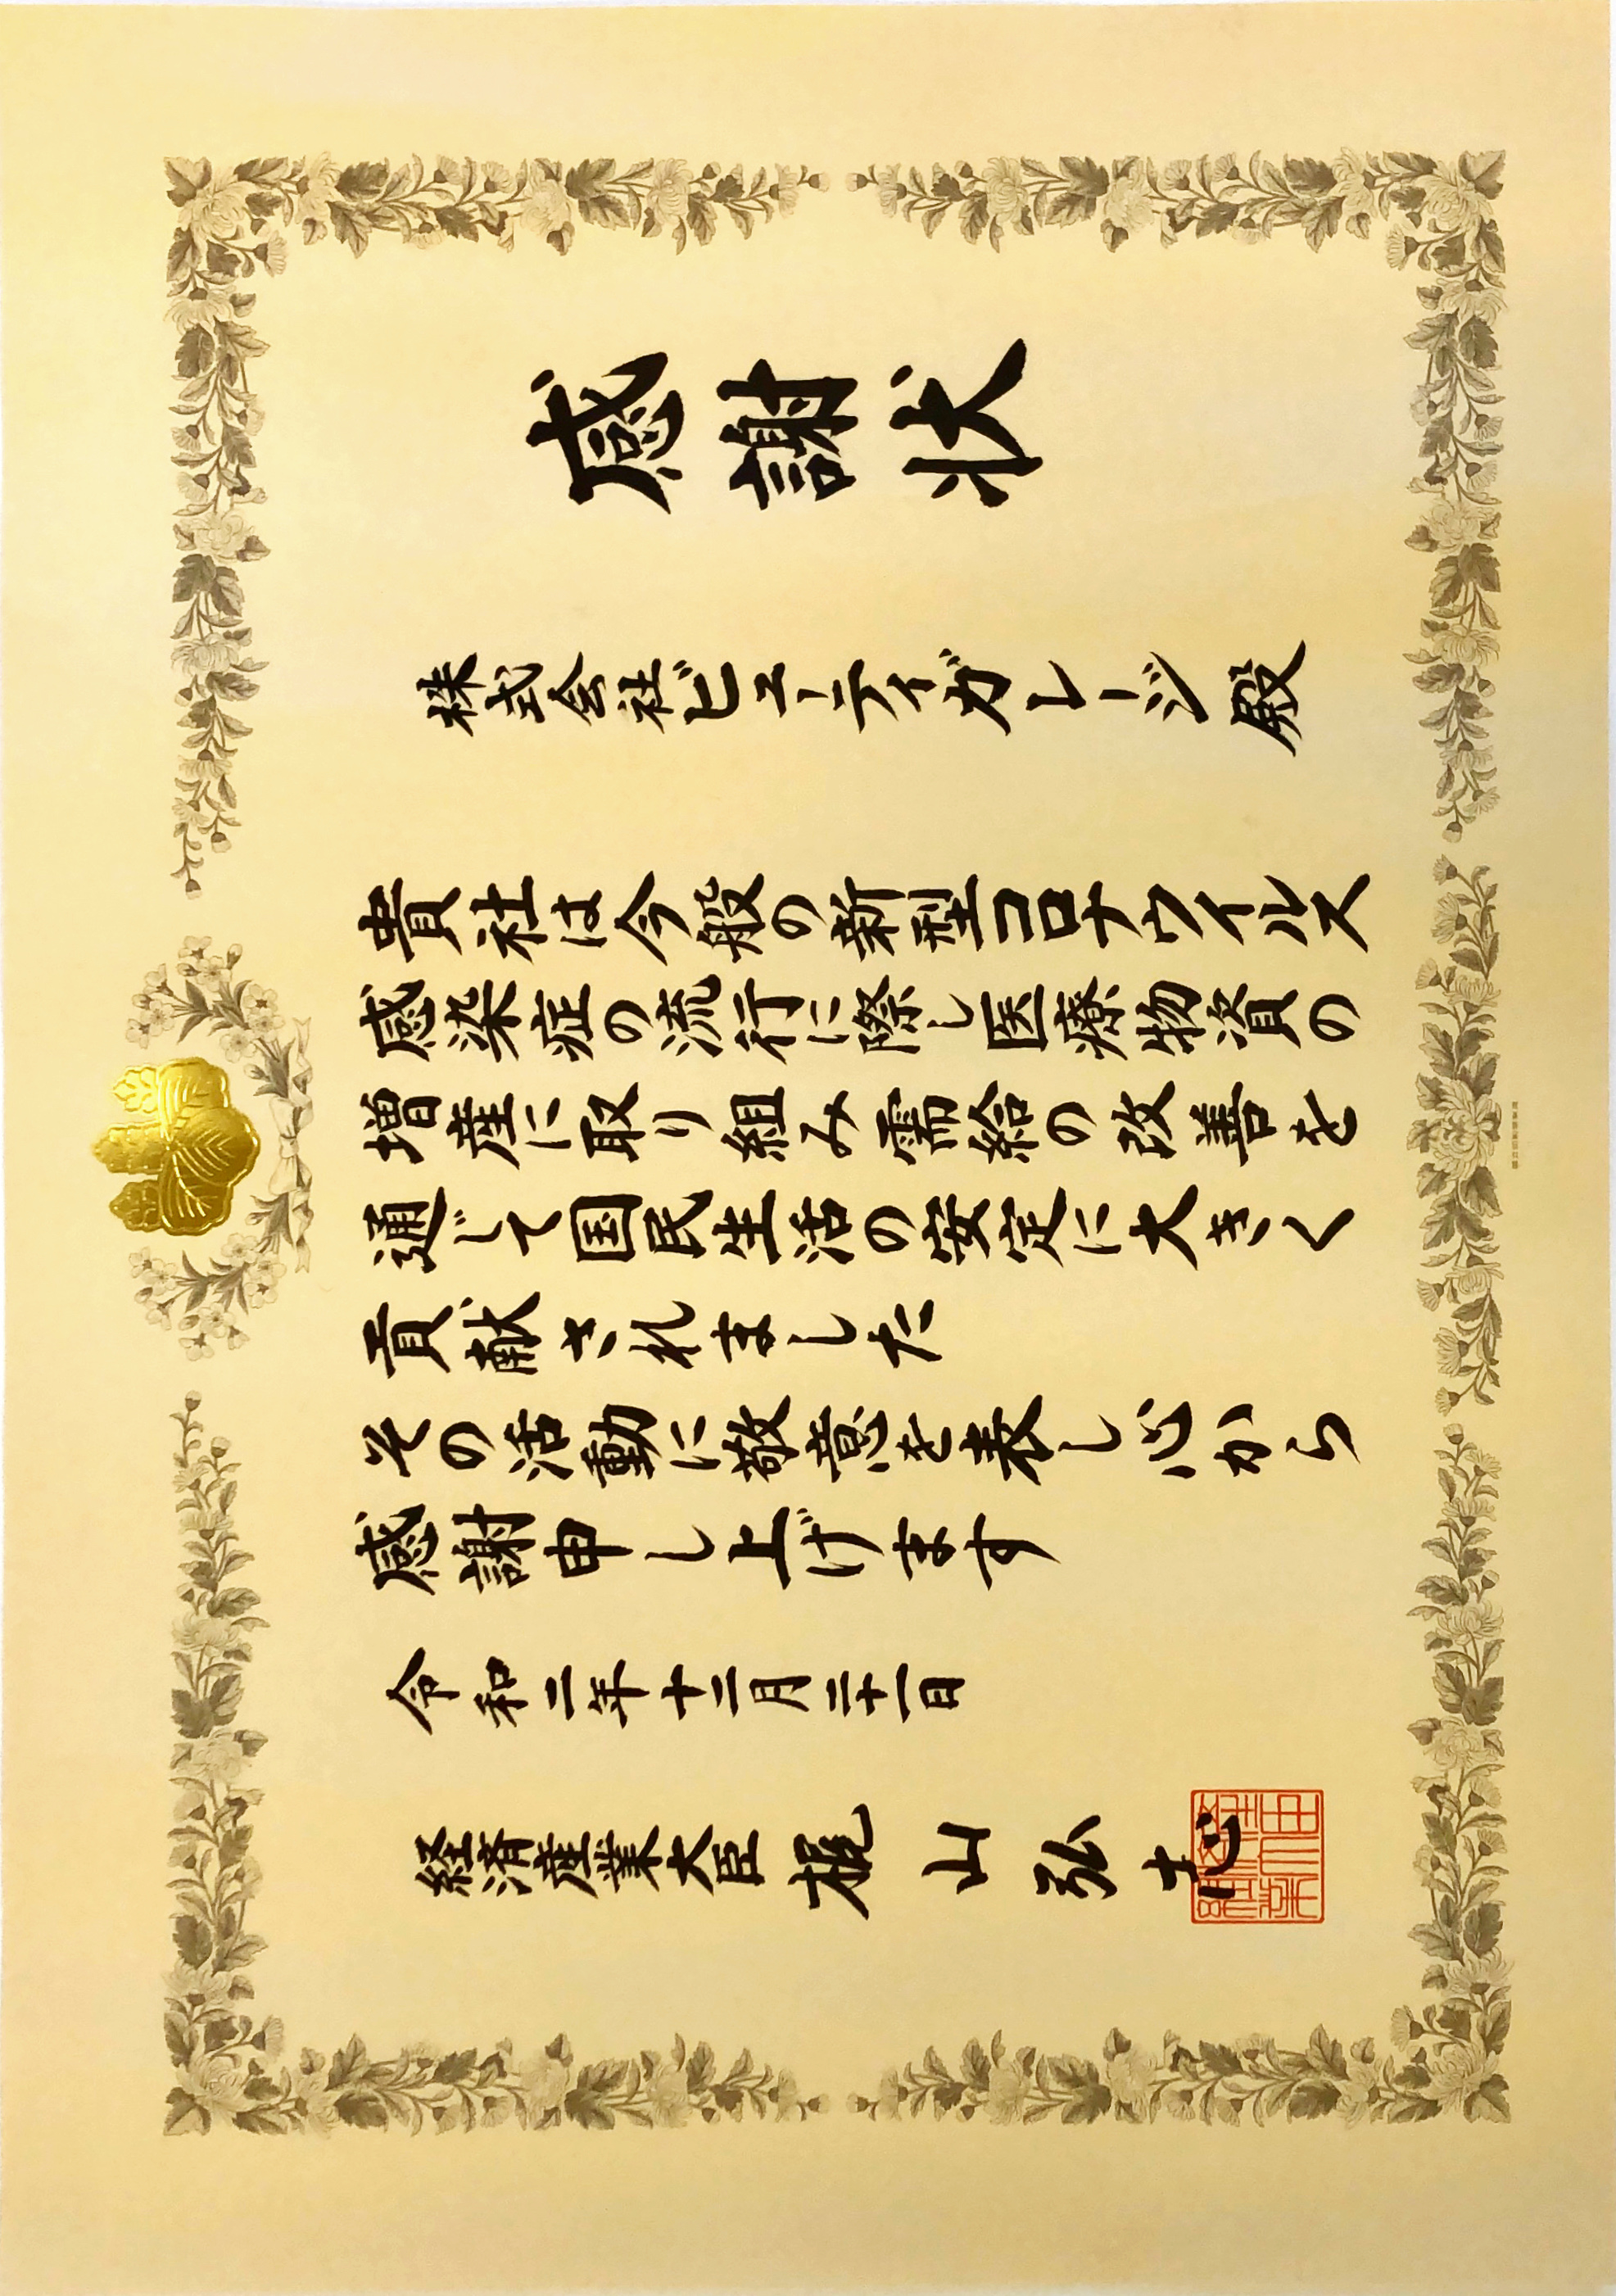 感謝状
株式会社ビューティガレージ殿
貴社は今般の新型コロナウイルス
感染症の流行に際し医療物資の
増産に取り組み需給の改善を
通じて国民生活の安定に大きく
貢献されました
その活動に敬意を表し心から
感謝申し上げます
令和二年十二月二十一日
経済産業大臣 梶山弘志